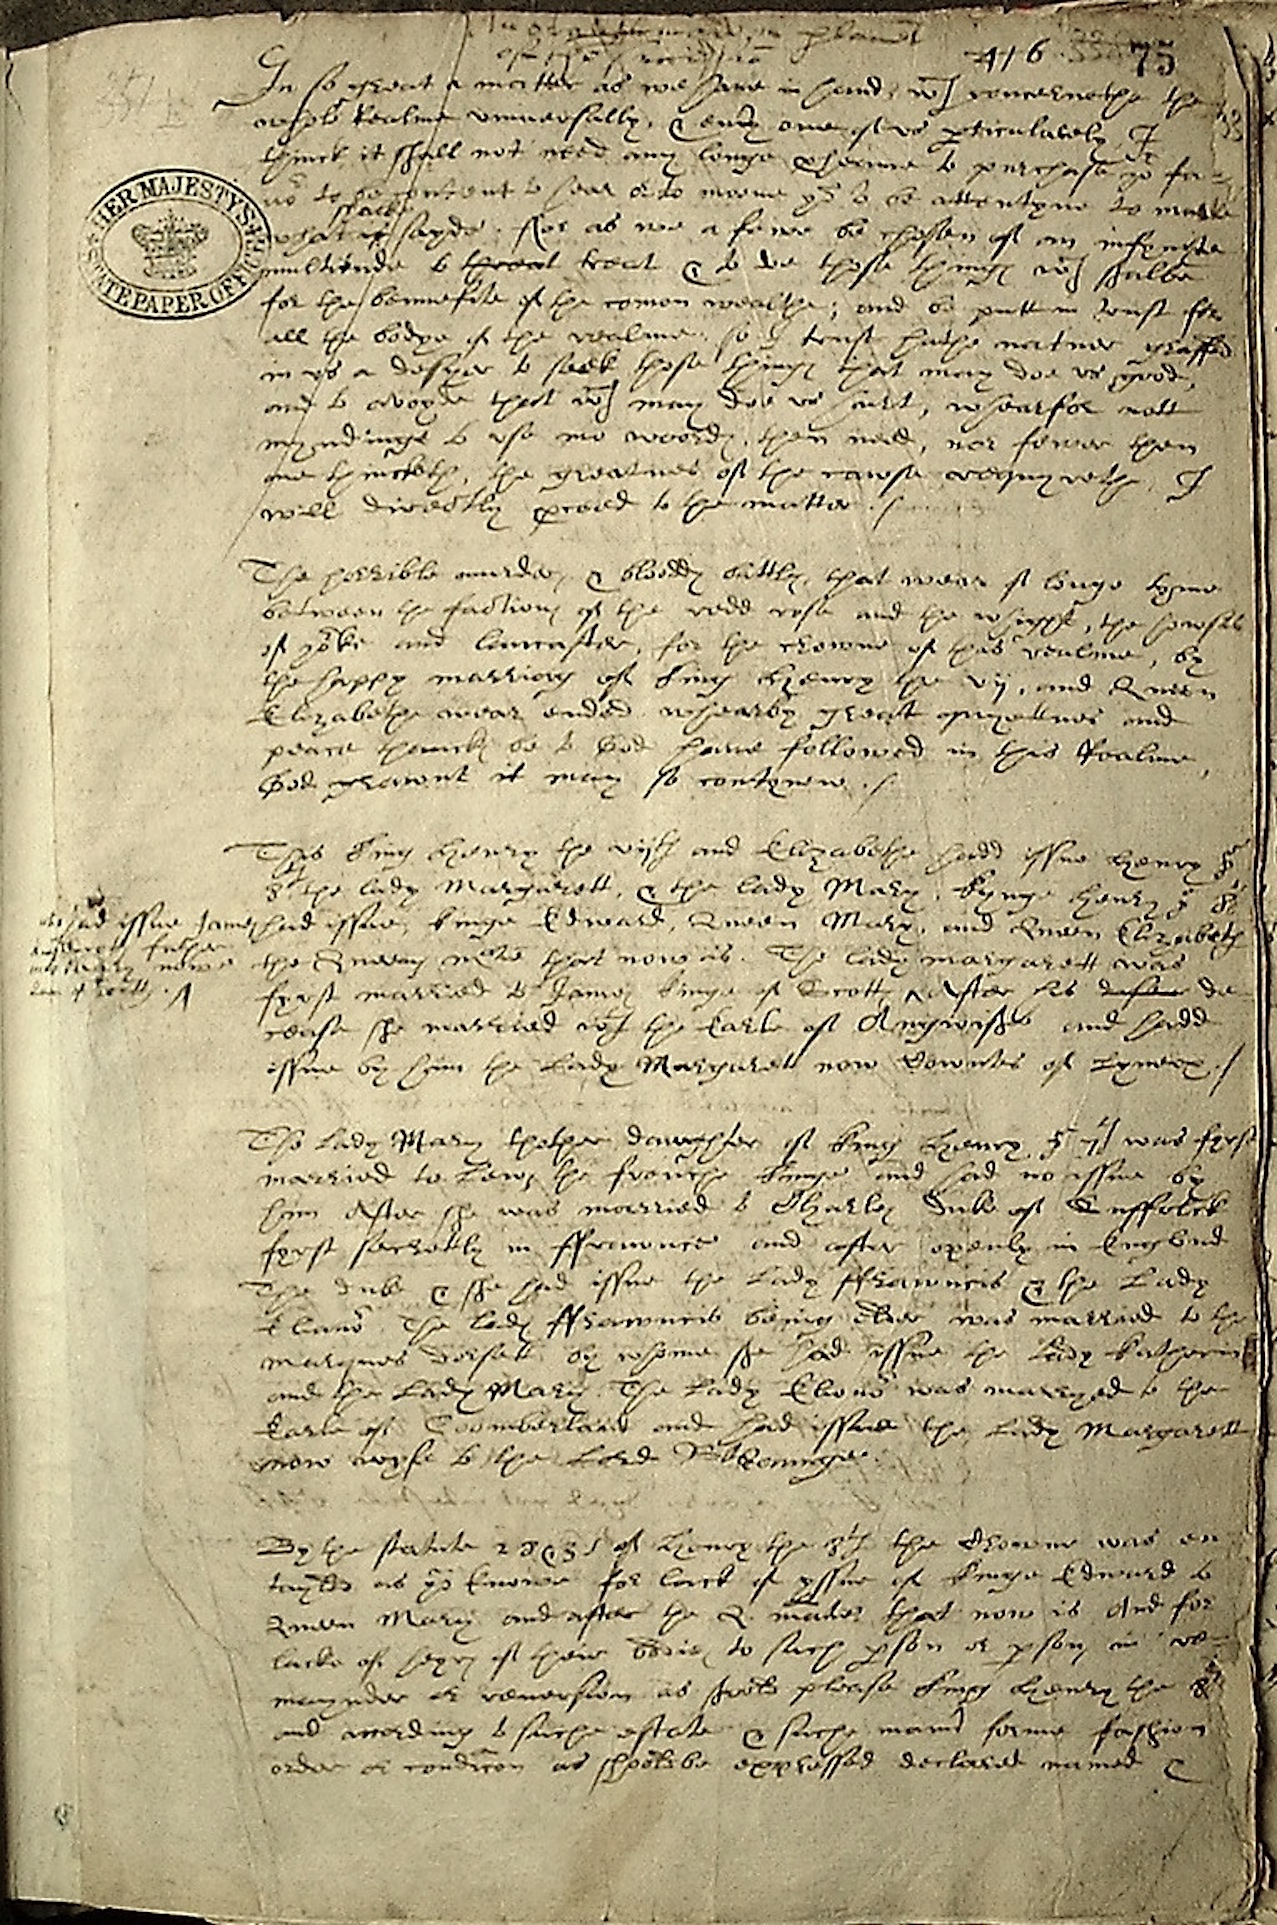 416
75
HER MAJESTY'S
STATE PAPER OFFICE
In so great a matter as we have in hand, wch concernethe the
whole Realme universally, & every one of us perticularly, I
thinck it shall not need any longe to purchase yor fa-
vor to be content to hear or to move yow to be attentyve to
what shalbe sayde. For as we a fewe be chosen of an infynite
multitude to threat treat & to doe those things wch shalbe
for the bennefite of the comon wealthe; and be putt in trust for
all the bodye of the realme. so I trust hathe nature graffed
in us a desyer to seek those things that may doe us good,
and to avoyde that wch may doe us hurt, whearfor nott
myndinge to use mo woords, then need, nor fewer then
me thincketh, the greatnes of the cawse requyrethe, I
will directly proceed to the matter ./
The horrible murders & bloddy battles, that wear of longe tyme
between the factions of the redd rose and the whyght, the howses
of Yorke and Lancaster, for the crowne of this realme, by
the happy marriag of King Henry the vij, and Queen
Elizabethe wear ended. whearby great quyettnes and
peace thancks be to God have followed in this Realme,
God graunt it may so contynew ./
This King Henry the vijth and Elizabethe hadd issue Henry ye
8th the lady Margarett, & the lady Mary. Kynge Henry ye 8
had issue, Kinge Edward, Queen Mary, and Queen Elizabeth
the Queens matie that now is. The lady margarett was
fyrst married to James Kinge of Scotts ^ After his desese de-
cease she married wth the Earle of Angwishe and hadd
issue by him the Lady Margarett now Cowntes of Lynnox ./
who had issue James
father
Mary nowe
Quen of Scotts ./
The Lady Mary thother daughter of King Henry ye 7th was fyrst
married to Lewes the frenche Kinge and had no issue by
him After she was married to Charles Duke of Suffolck
fyrst secretly in ffraunce and after openly in England
The duke & she had issue the Lady ffrauncis & the Lady
Elianor. The lady ffrauncis being elder was married to the
marques Dorsett by whome she had issue the Lady Katherin
and the Lady Mary. The Lady Elionor was marryed to the
Earle of Coomberland and had issue the Lady Margarett
now wyfe to the Lord Straunge.
By the statute 28 & 35 of Henry the 8th the Crowne was en
tayled as yow knowe for lack of yssue of Kinge Edward to
Queen Mary and after the Q. matie that now is And for
lacke of heyrs of their bodies to such person or persons in re-
maynder or reversion as shoold please King Henry the 8th
and according to suche estate & suche maner forme fashion
order or condicon as shoold be expressed declared named &